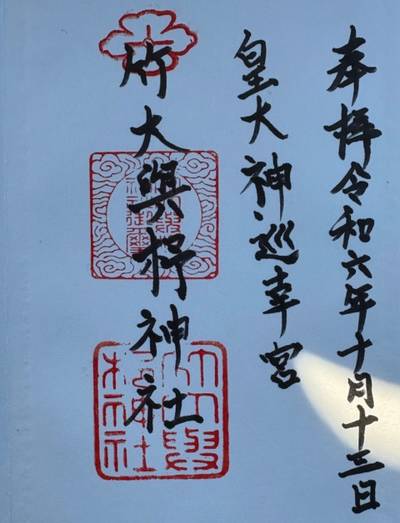 奉拝令和六年十月十三日
皇大神巡幸宮
竹大與杼神社